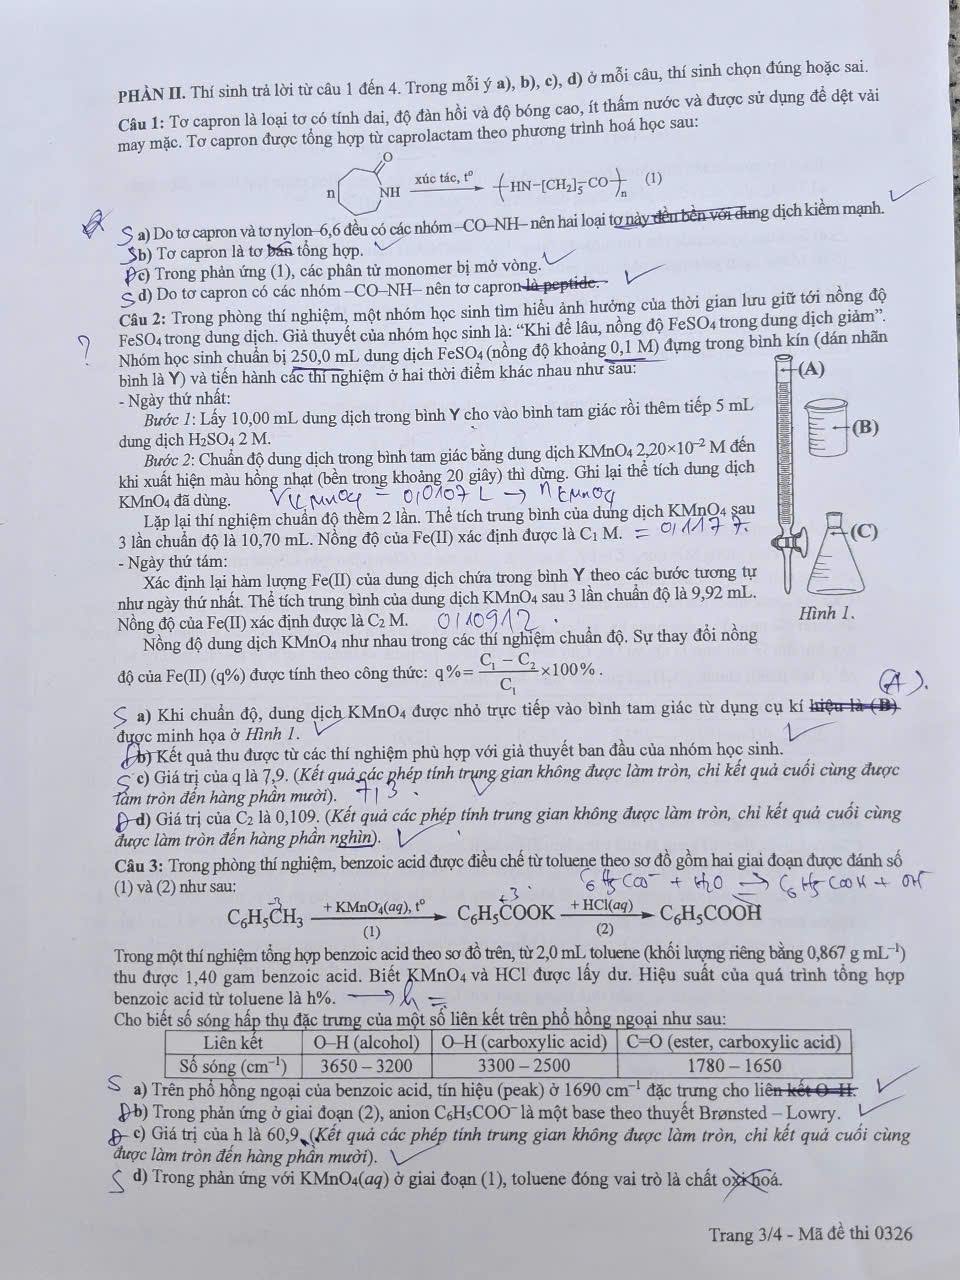 PHẦN II. Thí sinh trả lời từ câu 1 đến 4. Trong mỗi ý a), b), c), d) ở mỗi câu, thí sinh chọn đúng hoặc sai.
Câu 1: Tơ capron là loại tơ có tính dai, độ đàn hồi và độ bóng cao, ít thấm nước và được sử dụng để dệt vải
may mặc. Tơ capron được tổng hợp từ caprolactam theo phương trình hoá học sau:
n O NH xúc tác, tº (HN–[CH₂]₅–CO)ₙ (1)
S a) Do tơ capron và tơ nylon–6,6 đều có các nhóm –CO–NH– nên hai loại tơ này đều bền với dung dịch kiềm mạnh.
S b) Tơ capron là tơ bán tổng hợp.
Đ c) Trong phản ứng (1), các phân tử monomer bị mở vòng.
S d) Do tơ capron có các nhóm –CO–NH– nên tơ capron là peptide.
Câu 2: Trong phòng thí nghiệm, một nhóm học sinh tìm hiểu ảnh hưởng của thời gian lưu giữ tới nồng độ
FeSO₄ trong dung dịch. Giả thuyết của nhóm học sinh là: “Khi để lâu, nồng độ FeSO₄ trong dung dịch giảm”.
?
Nhóm học sinh chuẩn bị 250,0 mL dung dịch FeSO₄ (nồng độ khoảng 0,1 M) đựng trong bình kín (dán nhãn
bình là Y) và tiến hành các thí nghiệm ở hai thời điểm khác nhau như sau:
(A)
- Ngày thứ nhất:
Bước 1: Lấy 10,00 mL dung dịch trong bình Y cho vào bình tam giác rồi thêm tiếp 5 mL
(B)
dung dịch H₂SO₄ 2 M.
Bước 2: Chuẩn độ dung dịch trong bình tam giác bằng dung dịch KMnO₄ 2,20×10⁻² M đến
khi xuất hiện màu hồng nhạt (bền trong khoảng 20 giây) thì dừng. Ghi lại thể tích dung dịch
KMnO₄ đã dùng. V KMnO₄ = 0,0107 L → n KMnO₄
Lặp lại thí nghiệm chuẩn độ thêm 2 lần. Thể tích trung bình của dung dịch KMnO₄ sau
3 lần chuẩn độ là 10,70 mL. Nồng độ của Fe(II) xác định được là C₁ M. = 0,1177.
(C)
- Ngày thứ tám:
Xác định lại hàm lượng Fe(II) của dung dịch chứa trong bình Y theo các bước tương tự
như ngày thứ nhất. Thể tích trung bình của dung dịch KMnO₄ sau 3 lần chuẩn độ là 9,92 mL.
Hình 1.
Nồng độ của Fe(II) xác định được là C₂ M. 0,10912.
Nồng độ dung dịch KMnO₄ như nhau trong các thí nghiệm chuẩn độ. Sự thay đổi nồng
độ của Fe(II) (q%) được tính theo công thức: q% = (C₁ − C₂)/C₁ ×100%.
(A).
S a) Khi chuẩn độ, dung dịch KMnO₄ được nhỏ trực tiếp vào bình tam giác từ dụng cụ kí hiệu là (B)
được minh họa ở Hình 1.
Đ b) Kết quả thu được từ các thí nghiệm phù hợp với giả thuyết ban đầu của nhóm học sinh.
S c) Giá trị của q là 7,9. (Kết quả các phép tính trung gian không được làm tròn, chỉ kết quả cuối cùng được
làm tròn đến hàng phần mười). 7,3.
Đ d) Giá trị của C₂ là 0,109. (Kết quả các phép tính trung gian không được làm tròn, chỉ kết quả cuối cùng
được làm tròn đến hàng phần nghìn).
Câu 3: Trong phòng thí nghiệm, benzoic acid được điều chế từ toluene theo sơ đồ gồm hai giai đoạn được đánh số
(1) và (2) như sau: C₆H₅COO⁻ + H₂O ⇌ C₆H₅COOH + OH⁻
-3 +3
C₆H₅CH₃ + KMnO₄(aq), tº (1) C₆H₅COOK + HCl(aq) (2) C₆H₅COOH
Trong một thí nghiệm tổng hợp benzoic acid theo sơ đồ trên, từ 2,0 mL toluene (khối lượng riêng bằng 0,867 g mL⁻¹)
thu được 1,40 gam benzoic acid. Biết KMnO₄ và HCl được lấy dư. Hiệu suất của quá trình tổng hợp
benzoic acid từ toluene là h%. → h =
Cho biết số sóng hấp thụ đặc trưng của một số liên kết trên phổ hồng ngoại như sau:
Liên kết O–H (alcohol) O–H (carboxylic acid) C=O (ester, carboxylic acid)
Số sóng (cm⁻¹) 3650 – 3200 3300 – 2500 1780 – 1650
S a) Trên phổ hồng ngoại của benzoic acid, tín hiệu (peak) ở 1690 cm⁻¹ đặc trưng cho liên kết O–H.
Đ b) Trong phản ứng ở giai đoạn (2), anion C₆H₅COO⁻ là một base theo thuyết Brønsted – Lowry.
Đ c) Giá trị của h là 60,9. (Kết quả các phép tính trung gian không được làm tròn, chỉ kết quả cuối cùng
được làm tròn đến hàng phần mười).
S d) Trong phản ứng với KMnO₄(aq) ở giai đoạn (1), toluene đóng vai trò là chất oxi hoá.
Trang 3/4 - Mã đề thi 0326